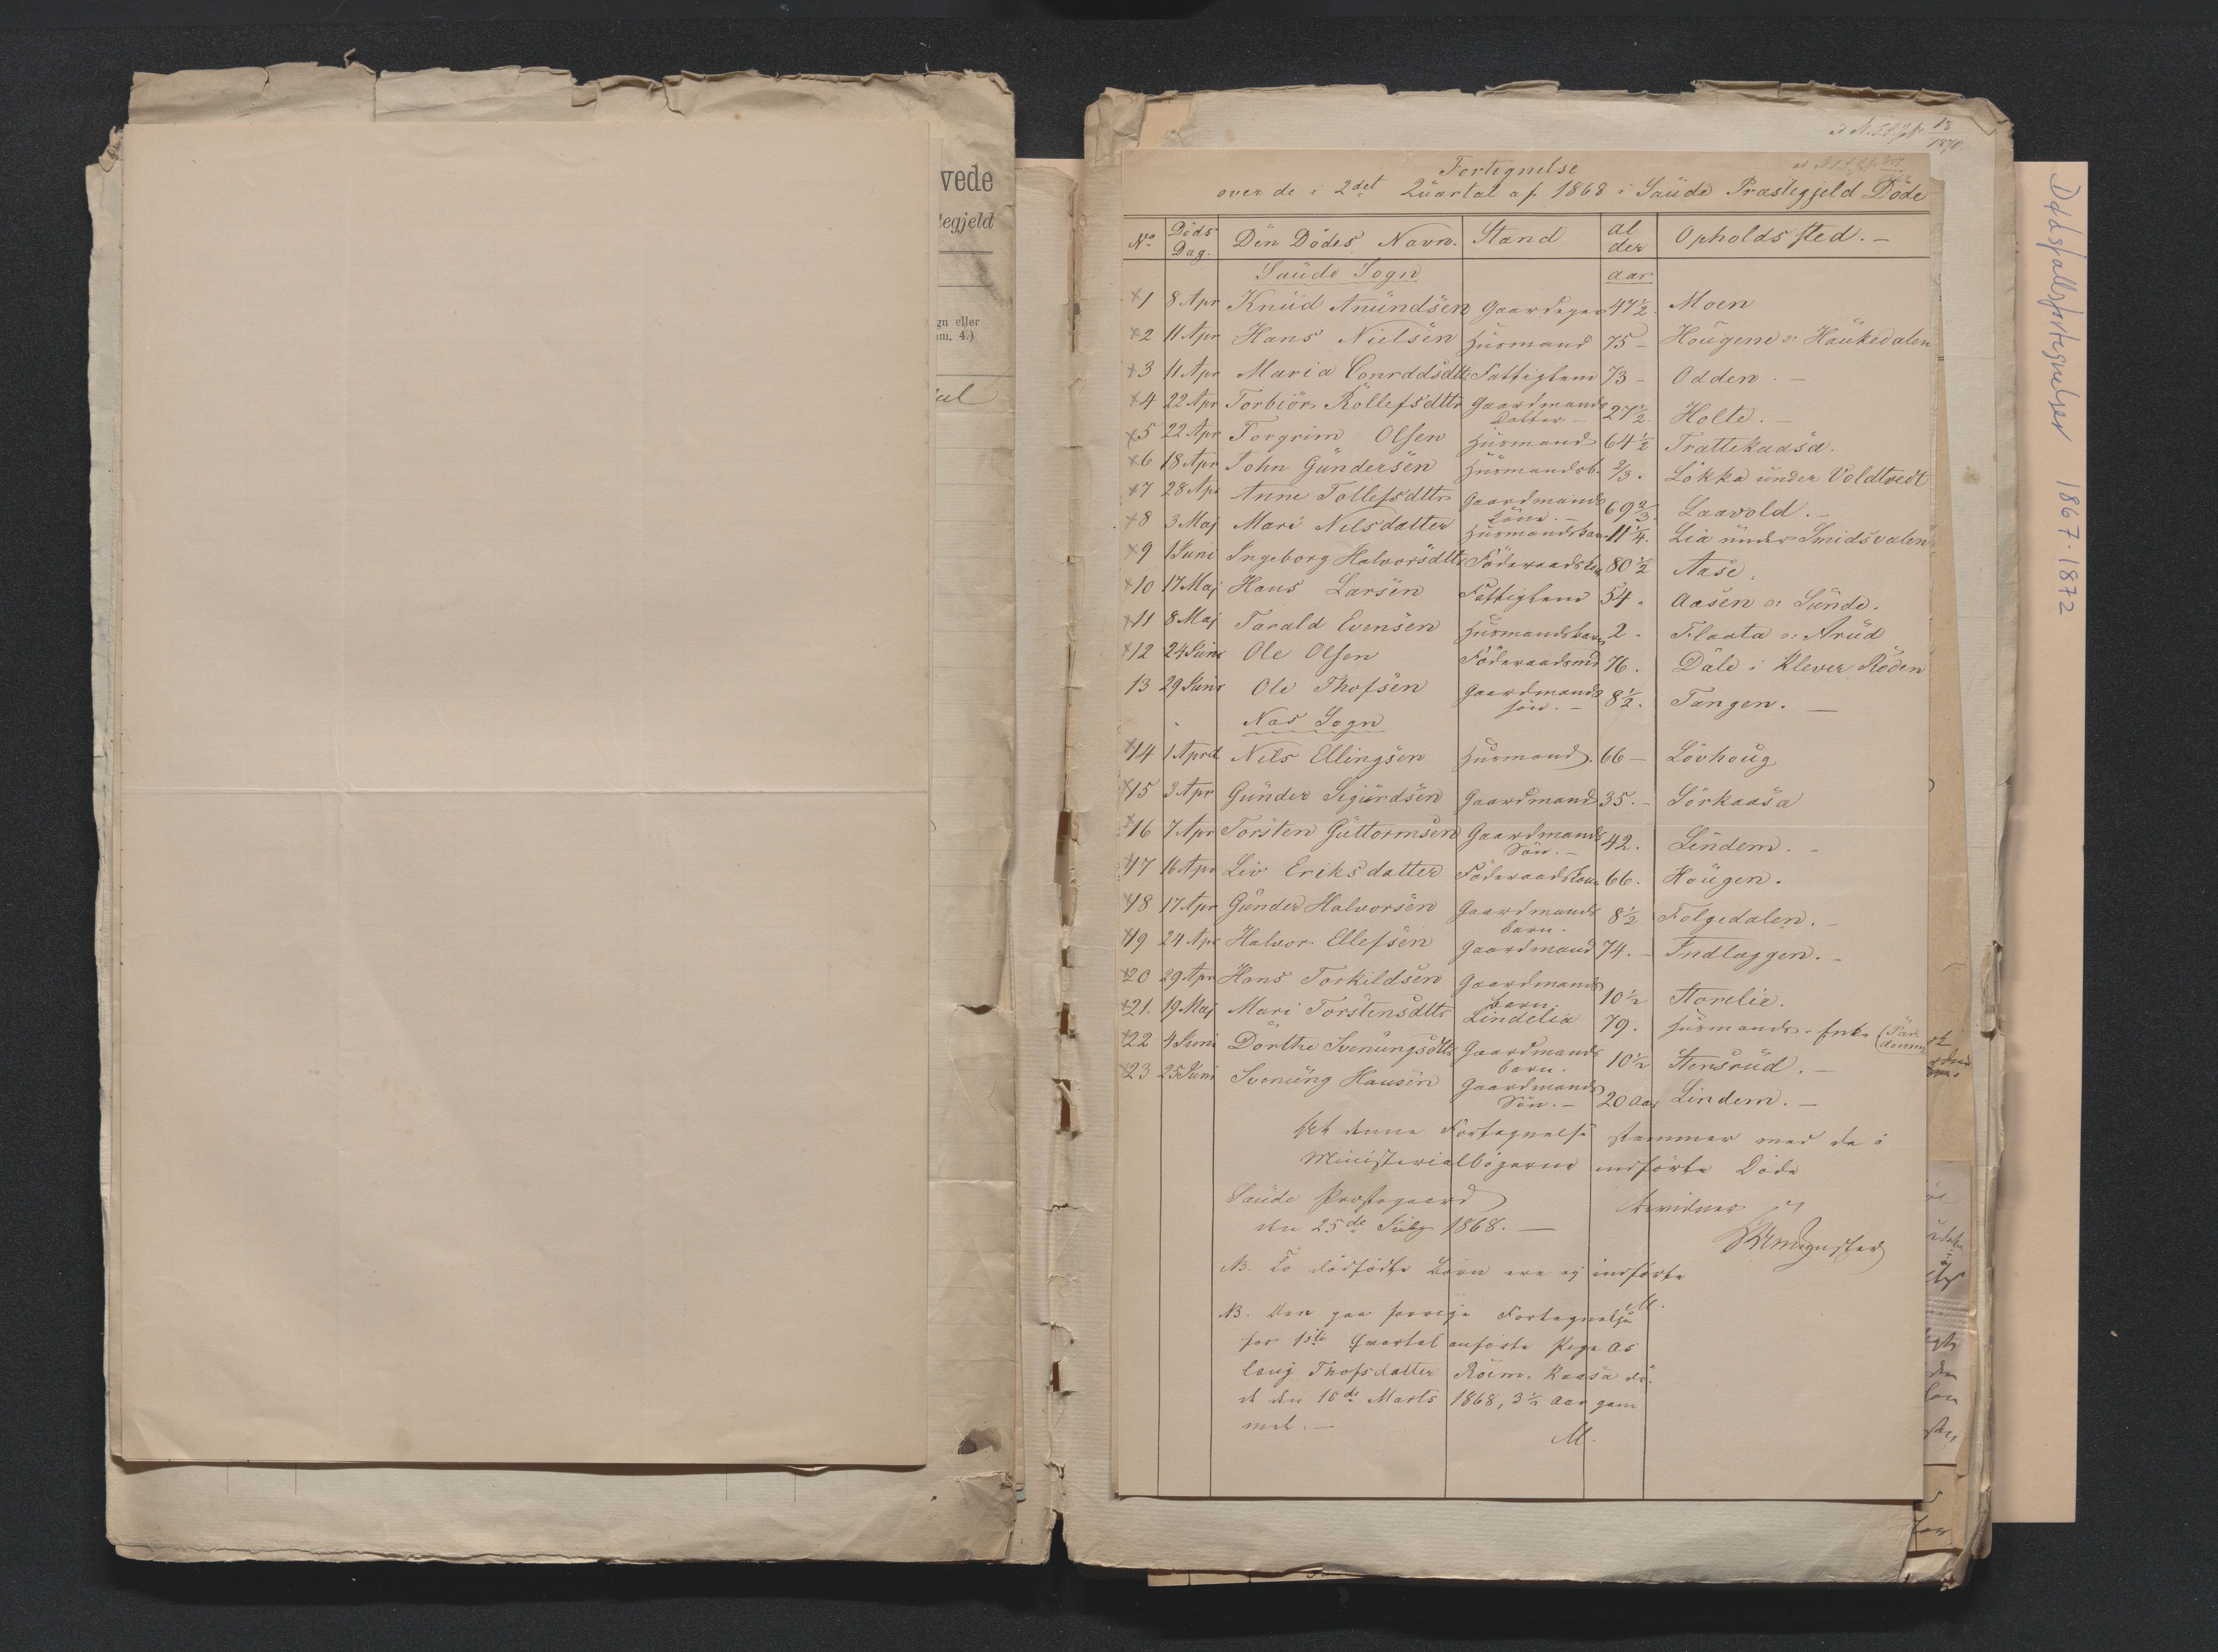 vede
legjeld
gn eller
m. 4.)
Dødsfallsfortegnelser 1867-1872
18
1870.
Fortegnelse
over de i 2det Qüartal af 1868 i Saüde Præstegjeld Döde
No Döds Dag. Den Dödes Navn. Stand Al der Opholdssted. -
Saüde Sogn aar
1 8 Apr Knüd Anündsen Gaardeger 47 1/2. Moen
2 11 Apr Hans Nielsen Hüsmand 75 - Hougene o: Haükedalen
3 11 Apr Maria Conraddsdttr Fattiglem 73 - Odden. -
4 22 Apr Torbiör Röllefsdttr Gaardmands Datter - 27 1/2 Holte. -
5 22 Apr Torgrim Olsen Hüsmand 64 1/2 Trattekaasa.
6 18 Apr John Gündersen Hüsmandsb. 2/3. Lökka ünder Voldtvedt
7 28 Apr Anne Tollefsdttr Gaardmands Köne. - 69 2/3. Laavold. -
8 3 Maj Mari Nilsdatter Hüsmandsbarn 11 1/4. Lia ünder Smidsvalen
9 1 Juni Ingeborg Halvorsdttr Föderaadskone 80 1/2 Aase.
10 17 Maj Hans Larsen Fattiglem 54. Aasen o: Sünde.
11 8 Maj Tarald Evensen Hüsmandsbarn 2. Flaata o: Arüd
12 24 Juni Ole Olsen Föderaadsmd 76. Dale i Klever Roden
13 29 Juni Ole Thofsen Gaardmands sön. - 8 1/2. Tangen. -
Nes Sogn
14 1 April Nils Ellingsen Hüsmand. 66 - Lövhoüg
15 3 Apr Günder Sigürdsen Gaardmand 35. - Sörkaasa
16 7 Apr Torsten Güttormsen Gaardmands Sön. - 42. Lindem. -
17 16 Apr Liv Eriksdatter Föderaadskone 66. Hoügen.
18 17 Apr Günder Halvorsen Gaardmands barn. 8 1/2 Folgedalen. -
19 24 Apr Halvor Ellefsen Gaardmand 74. - Indlæggen. -
20 29 Apr Hans Torkildsen Gaardmands barn. 10 1/2 Storelie.
21. 19 Maj Mari Torstensdttr Lindelia 79. Hüsmands-Enke
22 4 Juni Dorthe Svenüngsdttr Gaardmands barn. 10 1/2 Stensrüd. -
23 25 Juni Svenüng Hansen Gaardmands Sön. - 20 Aar Lindem. -
At denne Fortegnelse stemmer med de i
Ministerialbögerne indförte Döde
Saüde Prestegaard bevidner
den 25de July 1868. -
NB. To dödfödte Börn ere ej indförte
M.
NB. Den paa forrige Fortegnelse
for 1ste Qvartal anförte Pige As
laug Thofsdatter Röim. Kaasa dö-
de den 16de Marts 1868, 3 1/2 Aar gam
mel. -
M.